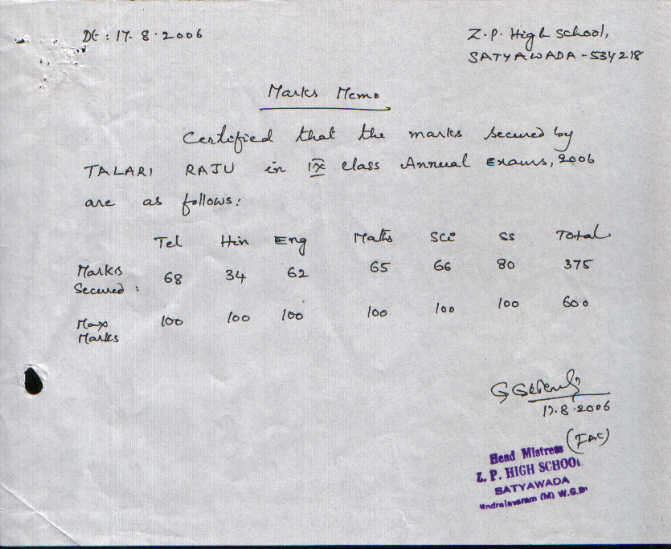 Dt : 17.8.2006
Z.P. High School,
SATYAWADA - 534218
Marks Memo
Certified that the marks secured by
TALARI RAJU in IX class Annual Exams, 2006
are as follows:
Tel Hin Eng Maths Sci SS Total
Marks Secured : 68 34 62 65 66 80 375
Max Marks 100 100 100 100 100 100 600
17.8.2006
(FAC)
Head Mistress
Z. P. HIGH SCHOOL
SATYAWADA
(M) W.G.Dt